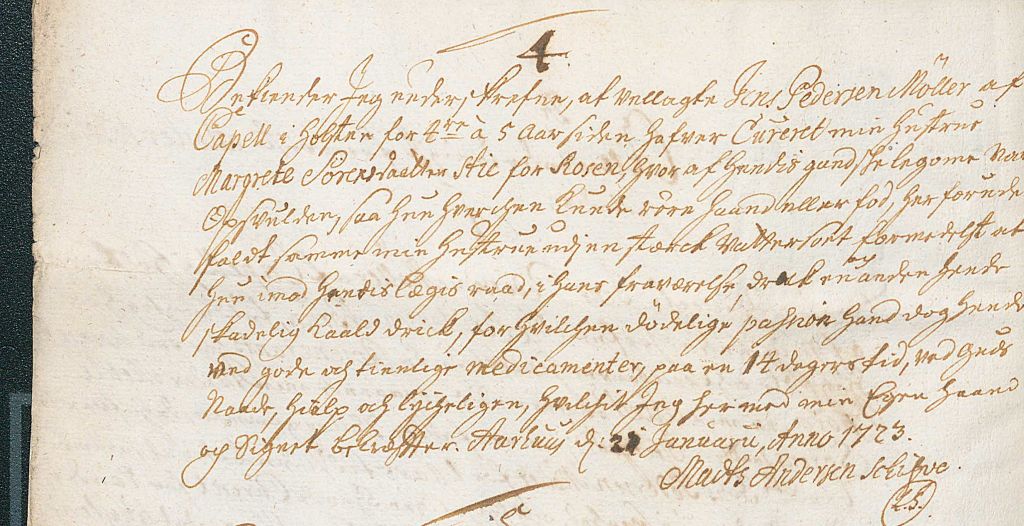 4.
Bekiender Jeg underskrefne, at vellagte Jens Pedersen Möller af
Capell i Holsten for 4re à 5 Aar siden hafver Cureret min hustrue
Margrete Sörensdaatter Stic for Rosen, hvor af hendis gandske legome Va
Opsvulden, saa hun hverchen kunde röre haand eller fod, her forude
faldt samme min hustrue udj en stærck Vattersoet formedelst at
hun imod hendis Lægis raad, i hans fraværelse, drak en anden hende
skadelig kaald drick, for hvilchen dödelige pashion hand dog hende
ved gode och tienlige medicamenter, paa en 14 dagers tid, ved Guds
Naade, hialp och lycheligen, hvilchit Jeg her med min Egen haand
og Signet bekræfter. Aarhuus d: 21 Januarii, Anno 1723.
Madts Andersen Schifve.
L.S.